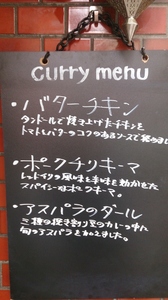 curry menu
・バターチキン
タンドールで焼き上げたチキンを
トマトとバターのコクのあるソースで煮ました
・ポークチリキーマ
レッドチリの風味を辛味を効かせた
スパイシーなポークキーマ。
・アスパラのダール
三種の挽き割り豆のカレーに
旬のアスパラを加えました。